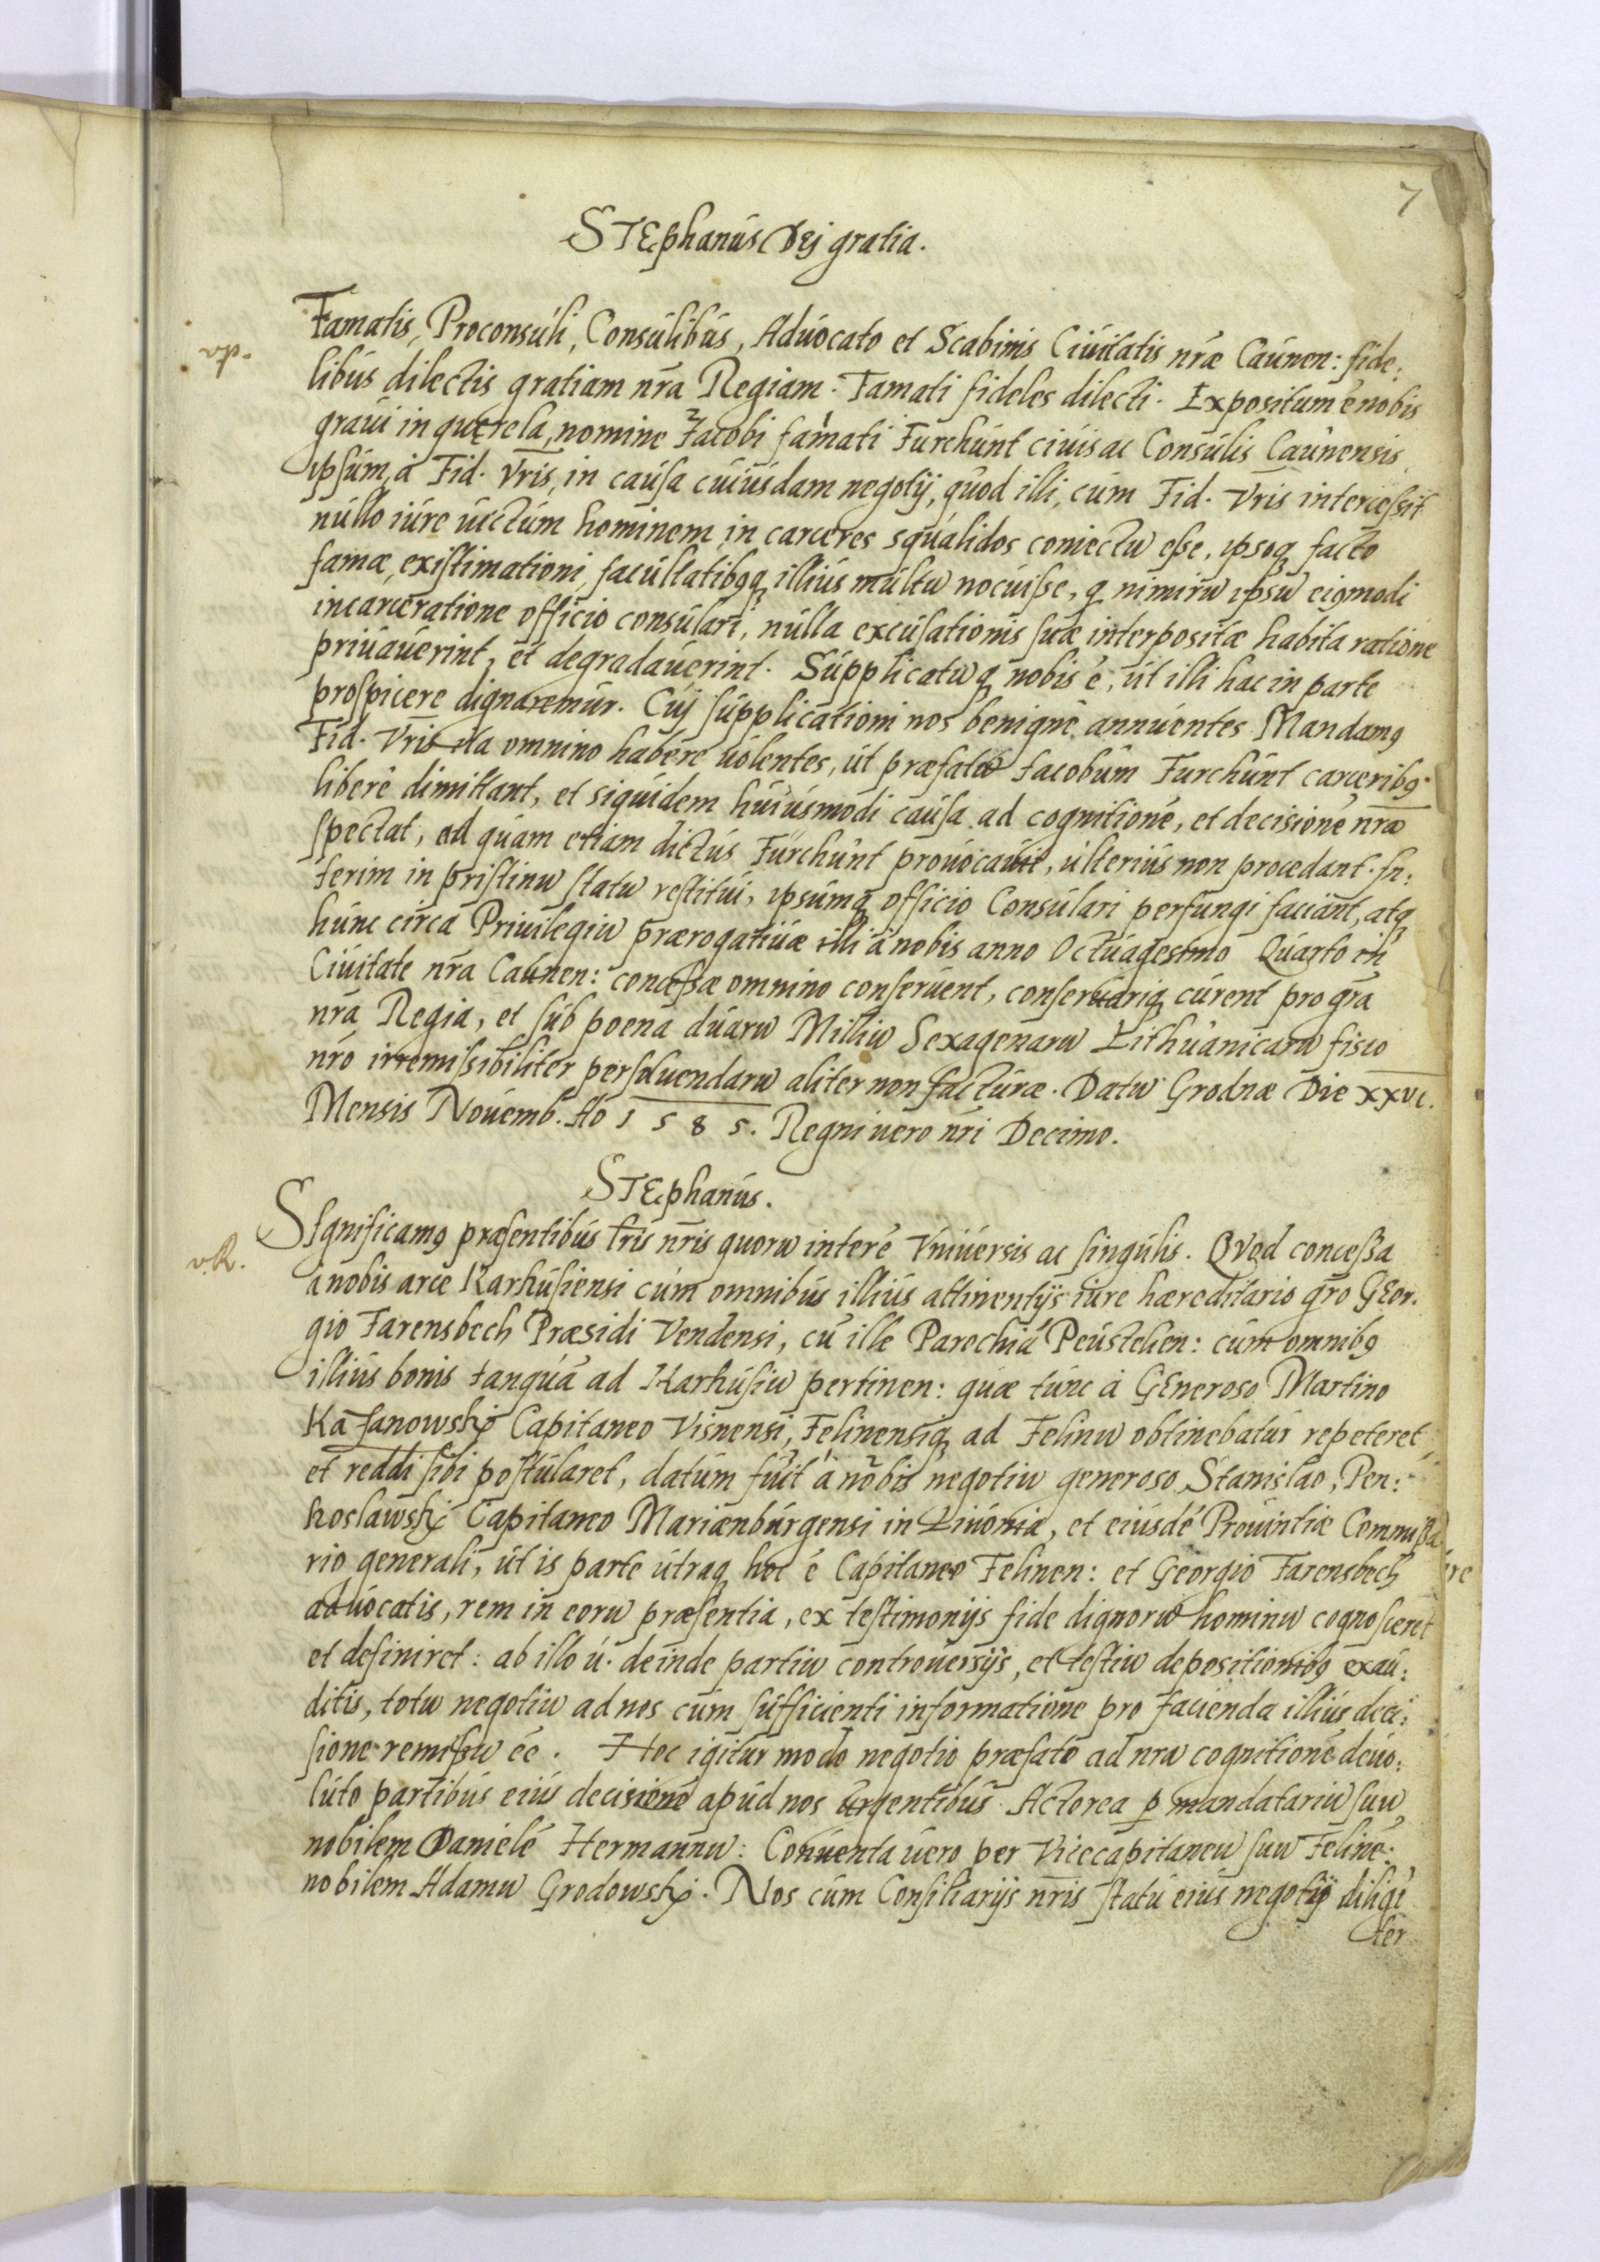 7
STEphanús Dej gratia.
Famatis, Proconsúli, Consúlibús, Advocato et Scabinis Ciúitatis nræ Caúnen: fide:
libús dilectis gratiam nra Regiam. Famati fideles dilecti. Expositum é nobis
graúi in querela, nomine Jacobi famati Turchúnt ciúis ac Consúlis Caúnensis,
ipsúm, á Fid. Vris, in caúsa cúiúsdam negotij, qúod illi, cúm Fid. Vris intercessit
núllo iúre úictúm hominem, in carceres sqúalidos coniectu esse, ipsoq facto
famæ, existimationi, facúltatibqq illiús múltu nocúisse, q nimiru ipsu eiqmodi
incarceratione officio consúlari, núlla excúsationis súæ interpositæ habita ratione
priúaúerint, et degradaúerint. Súpplicatuq nobis é, út illi hac in parte
prospicere dignaremúr. Cúj súpplicationi nos benignè annúentes Mandamq
Fid. Vris ita omnino habere úolentes, út præfatu Jacobúm Turchúnt carceribq
liberè dimittant, et siqúidem húiúsmodi caúsa ad cognitioné, et decisioné nræ
spectat, ad qúam etiam dictús Túrchúnt proúocaúit, últeriús non procedant. In:
terim in pristinu statu restitúi, ipsúmq officio Consúlari perfungi faciant, atq
húnc circa Priúilegiu prærogatiúæ illi á nobis anno Octúagesimo Qúarto in
Ciúitate nra Caúnen: concessæ omnino conserúent, conserúariq cúrent pro gra
nra Regia, et súb poena dúaru Milliu Sexagenaru Lithúanicaru fisco
nro irremissibiliter persoluendaru aliter non factúræ. Datu Grodnæ Die XXVI.
Mensis Noúemb. Ao 1585. Regni úero nri Decimo.
STEphanús.
vR. SIgnificamq præsentibús lris nris quoru interé Vniúersis ac singúlis. QVod concessa
á nobis arce Karkúsiensi cúm omnibús illiús attinentijs iúre hæreditario gro GEor.
gio Farensbech Præsidi Vendensi, cú ille Parochiá Peústelien: cúm omnibq
illiús bonis tanqúá ad Karkúsiu pertinen: qúæ túnc á GEneroso Martino
Kasanowskj Capitaneo Visnensi, Felinensiq ad Felinu obtinebatúr repeteret,
et reddi sibi postúlaret, datúm fúit á nobis negotiu generoso Stanislao, Pen:
koslawskj Capitaneo Mariænbúrgensi in Liúonia, et eiúsdé Proúintiæ Commissa
rio generali, út is parte útraq hoc é Capitaneo Felinen: et Georgio Farensbech
adúocatis, rem in eoru præsentia, ex testimonijs fide dignoru hominu cognosceret
et definiret: ab illo ú. deinde partiu controúersijs, et testiu depositionibq exaú:
ditis, totu negotiu ad nos cúm súfficienti informatione pro facienda illiús deci:
sione remissu eé. Hoc igitur modo negotio præfato ad nra cognitioné deúo:
lúto partibús eiús decisioné apúd nos úrgentibús. Actorea p mandatariu suu
nobilem Danielé Hermannu: Conúenta úero per Vicecapitaneu suu Feliné:
nobilem Adamu Grodowskj. Nos cúm Consiliarijs nris statú eiús negotij diligé
ter